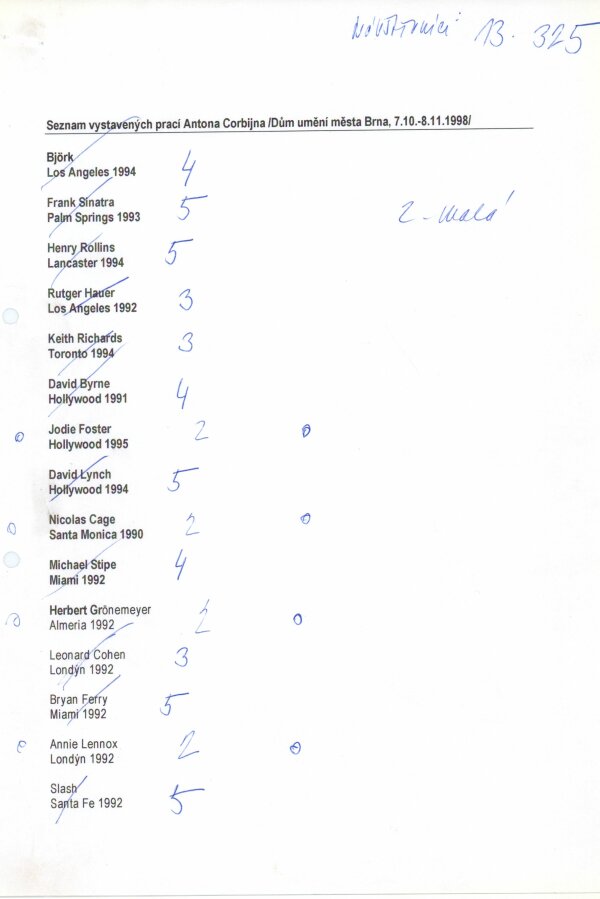 Návštěvníci: 13.325
Seznam vystavených prací Antona Corbijna /Dům umění města Brna, 7.10.-8.11.1998/
Björk 4
Los Angeles 1994
Frank Sinatra 5
Palm Springs 1993 2-malá
Henry Rollins 5
Lancaster 1994
Rutger Hauer 3
Los Angeles 1992
Keith Richards 3
Toronto 1994
David Byrne 4
Hollywood 1991
Jodie Foster 2
Hollywood 1995
David Lynch 5
Hollywood 1994
Nicolas Cage 2
Santa Monica 1990
Michael Stipe 4
Miami 1992
Herbert Grönemeyer 2
Almeria 1992
Leonard Cohen 3
Londýn 1992
Bryan Ferry 5
Miami 1992
Annie Lennox 2
Londýn 1992
Slash 5
Santa Fe 1992